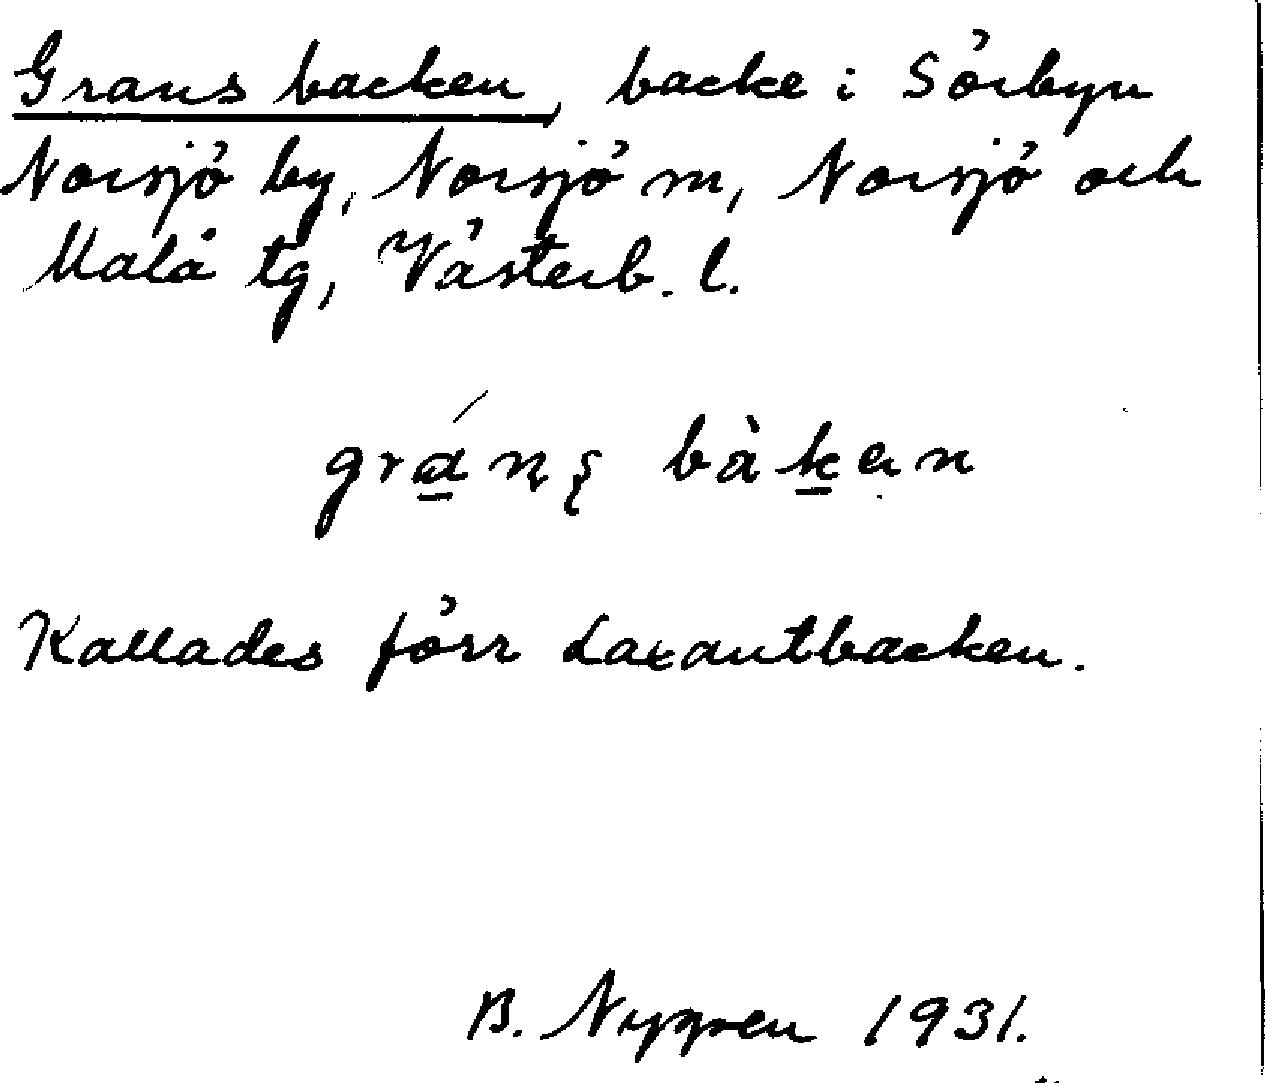 Gransbacken, backe i Sörbyn
Norsjö by, Norsjö sn, Norsjö och
Malå tg, Västerb. l.
grá̱nş bàḵan
Kallades förr Laxantbacken.
B. Nygren 1931.